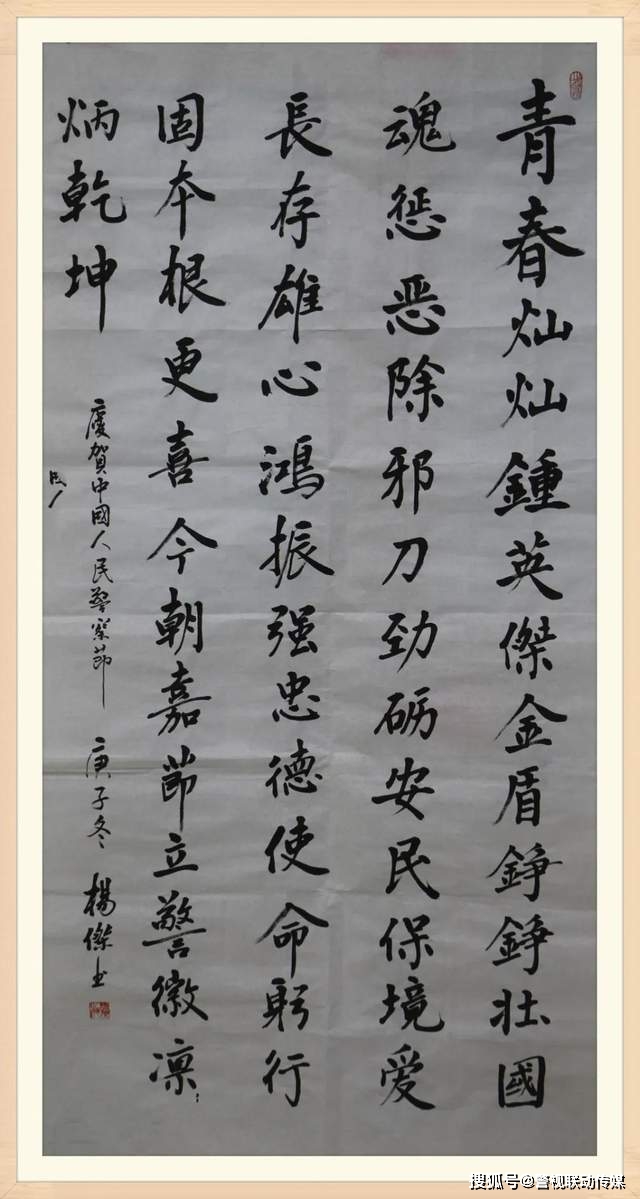 青春灿灿鍾英傑金盾錚錚壯國
魂惩恶除邪刀劲砺安民保境爱
長存雄心鴻振强忠德使命躬行
固本根更喜今朝嘉節立警徽凛〻
炳乾坤
慶賀中國人民警察節
庚子冬 楊傑书
搜狐号@警视联动传媒